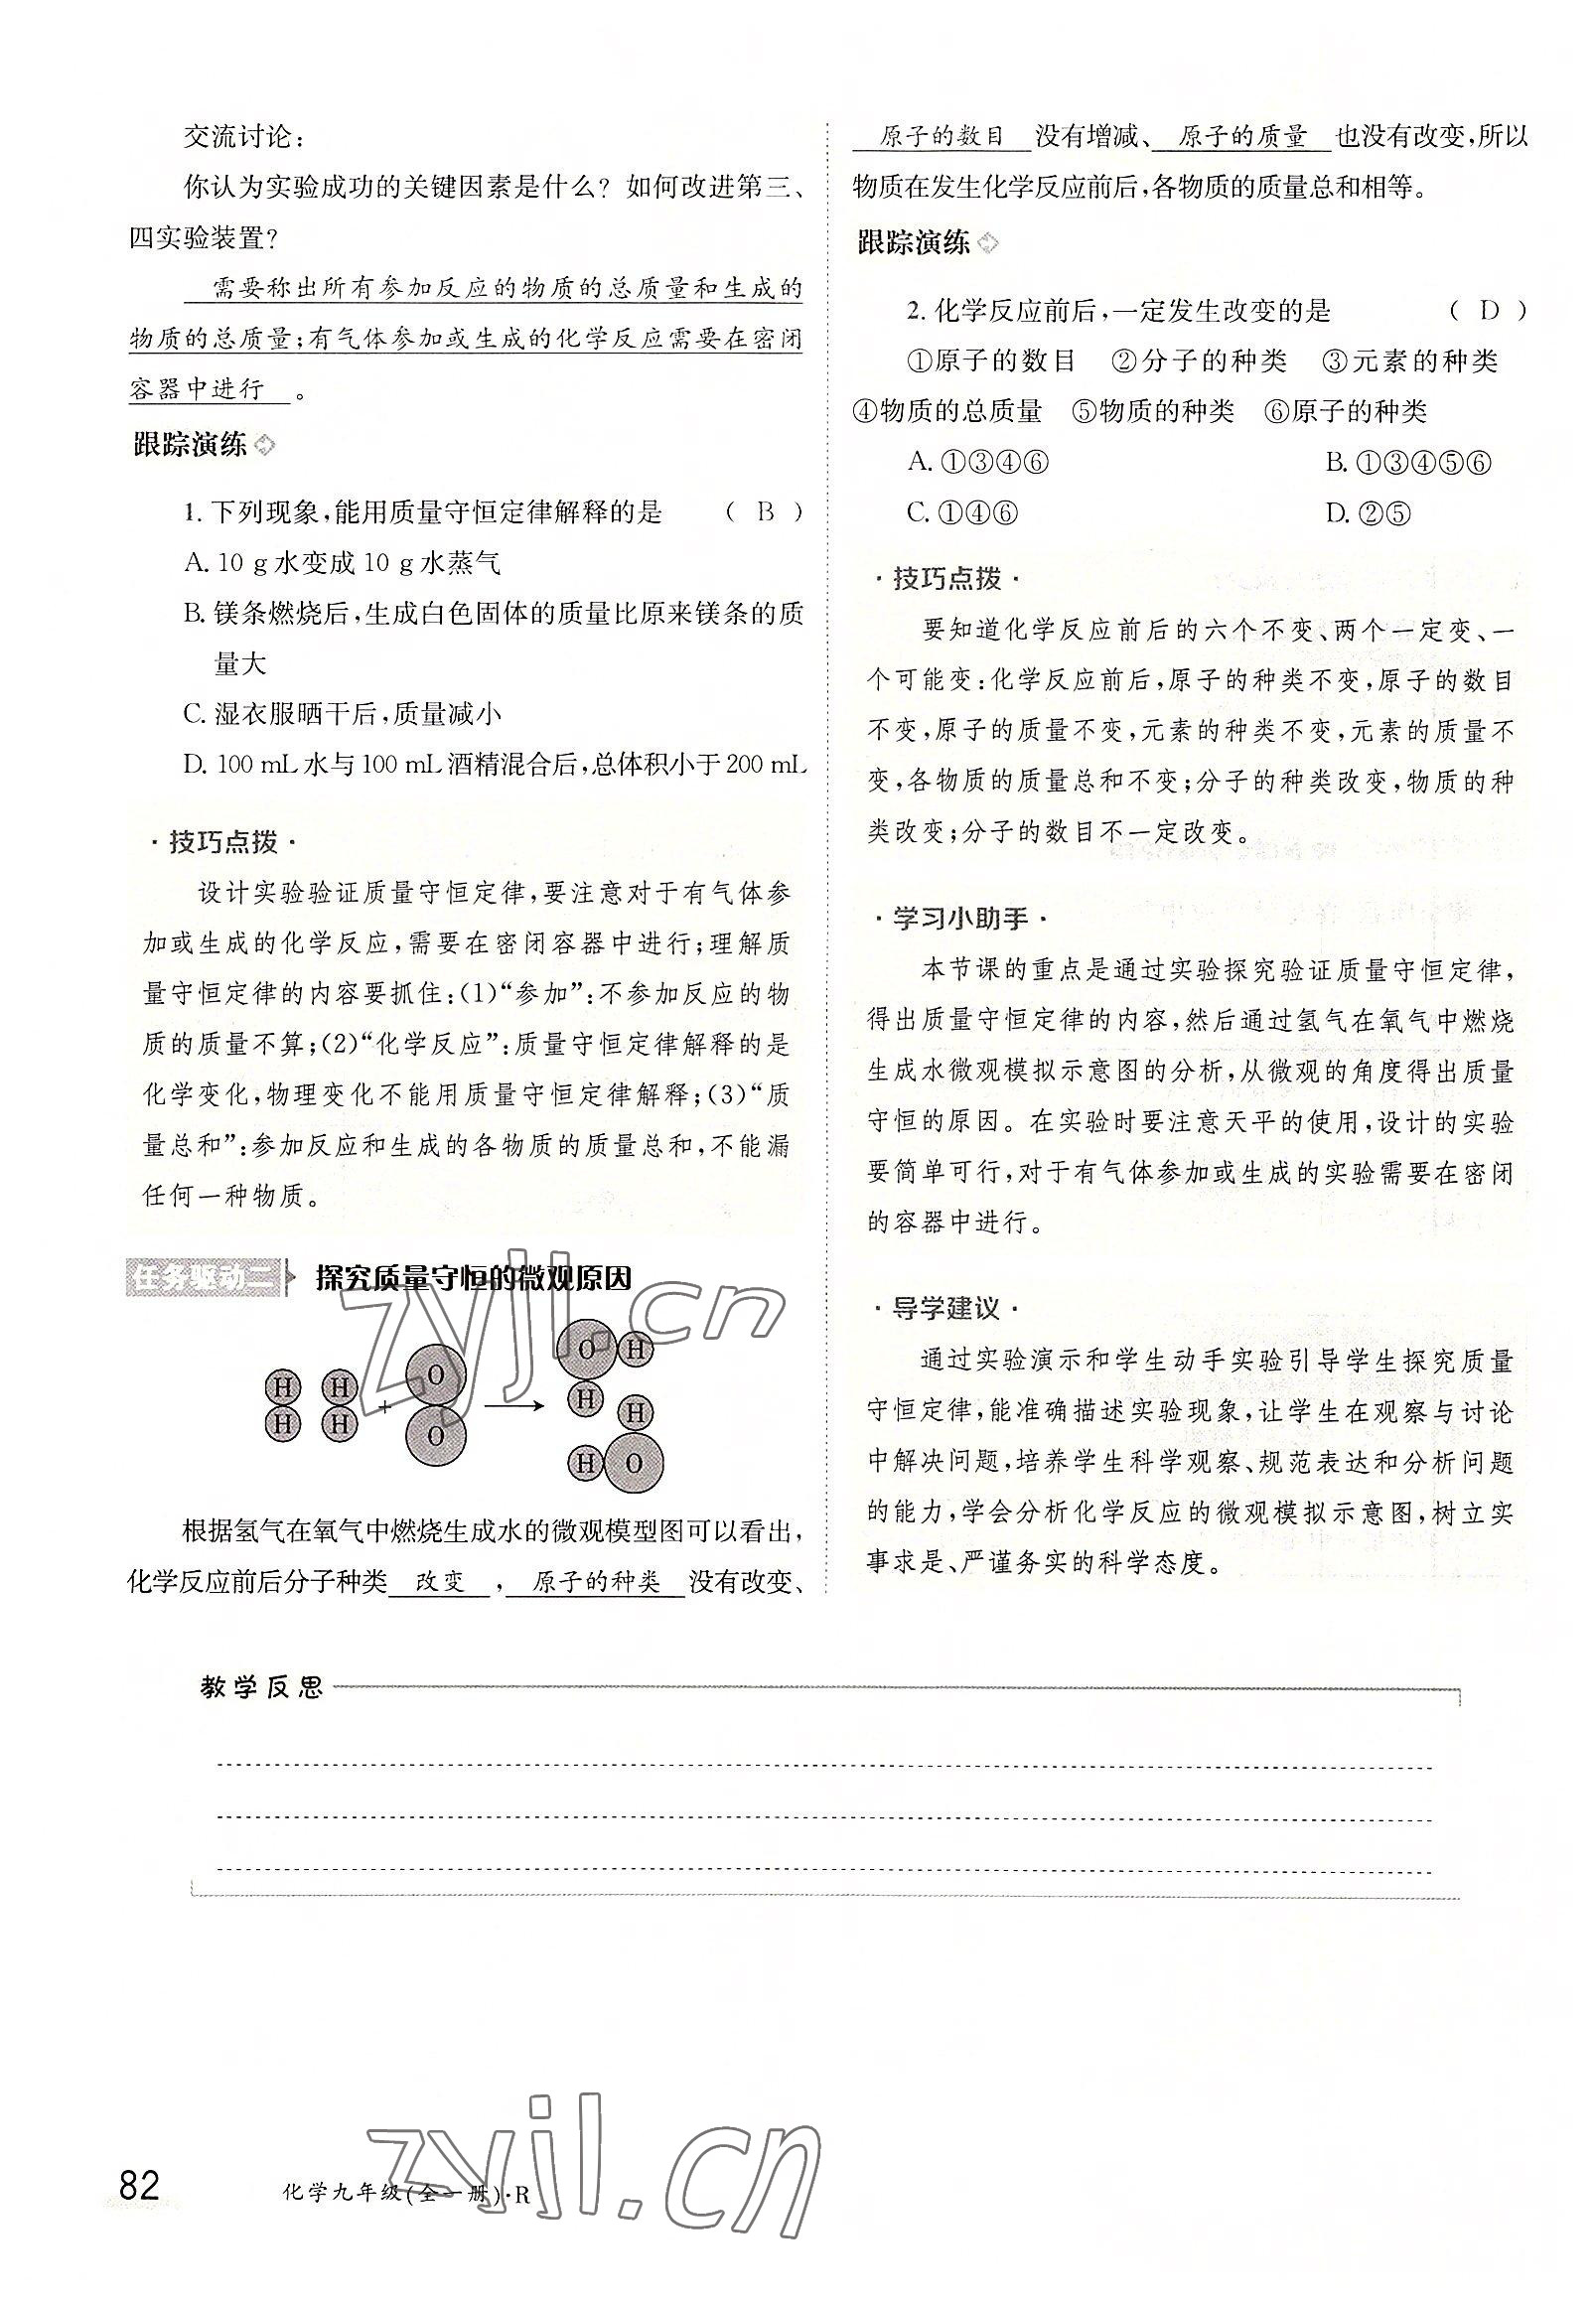 交流讨论:
你认为实验成功的关键因素是什么? 如何改进第三、
四实验装置?
需要称出所有参加反应的物质的总质量和生成的
物质的总质量;有气体参加或生成的化学反应需要在密闭
容器中进行 。
跟踪演练
1. 下列现象,能用质量守恒定律解释的是 ( B )
A. 10 g水变成 10 g水蒸气
B. 镁条燃烧后,生成白色固体的质量比原来镁条的质
量大
C. 湿衣服晒干后,质量减小
D. 100 mL水与100 mL酒精混合后,总体积小于200 mL
·技巧点拨·
设计实验验证质量守恒定律,要注意对于有气体参
加或生成的化学反应,需要在密闭容器中进行;理解质
量守恒定律的内容要抓住:(1)“参加”:不参加反应的物
质的质量不算;(2)“化学反应”:质量守恒定律解释的是
化学变化,物理变化不能用质量守恒定律解释;(3)“质
量总和”:参加反应和生成的各物质的质量总和,不能漏
任何一种物质。
任务驱动二 探究质量守恒的微观原因
O H
H H O H H
+
H H O H O
根据氢气在氧气中燃烧生成水的微观模型图可以看出,
化学反应前后分子种类 改变 , 原子的种类 没有改变、
原子的数目 没有增减、 原子的质量 也没有改变,所以
物质在发生化学反应前后,各物质的质量总和相等。
跟踪演练
2. 化学反应前后,一定发生改变的是 ( D )
①原子的数目 ②分子的种类 ③元素的种类
④物质的总质量 ⑤物质的种类 ⑥原子的种类
A. ①③④⑥ B. ①③④⑤⑥
C. ①④⑥ D. ②⑤
·技巧点拨·
要知道化学反应前后的六个不变、两个一定变、一
个可能变:化学反应前后,原子的种类不变,原子的数目
不变,原子的质量不变,元素的种类不变,元素的质量不
变,各物质的质量总和不变;分子的种类改变,物质的种
类改变;分子的数目不一定改变。
·学习小助手·
本节课的重点是通过实验探究验证质量守恒定律,
得出质量守恒定律的内容,然后通过氢气在氧气中燃烧
生成水微观模拟示意图的分析,从微观的角度得出质量
守恒的原因。在实验时要注意天平的使用,设计的实验
要简单可行,对于有气体参加或生成的实验需要在密闭
的容器中进行。
·导学建议·
通过实验演示和学生动手实验引导学生探究质量
守恒定律,能准确描述实验现象,让学生在观察与讨论
中解决问题,培养学生科学观察、规范表达和分析问题
的能力,学会分析化学反应的微观模拟示意图,树立实
事求是、严谨务实的科学态度。
教学反思
82 化学九年级(全一册)·R
zyjl.cn
zyjl.cn